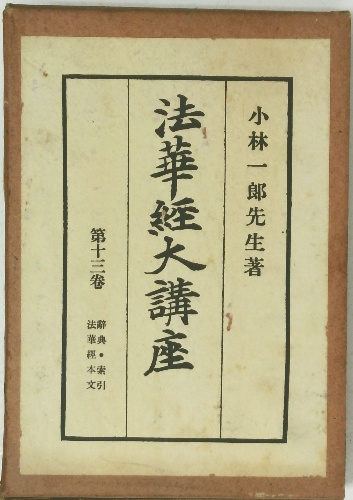 小林一郎先生著
法華經大講座
第十三卷
辭典・索引
法華經本文